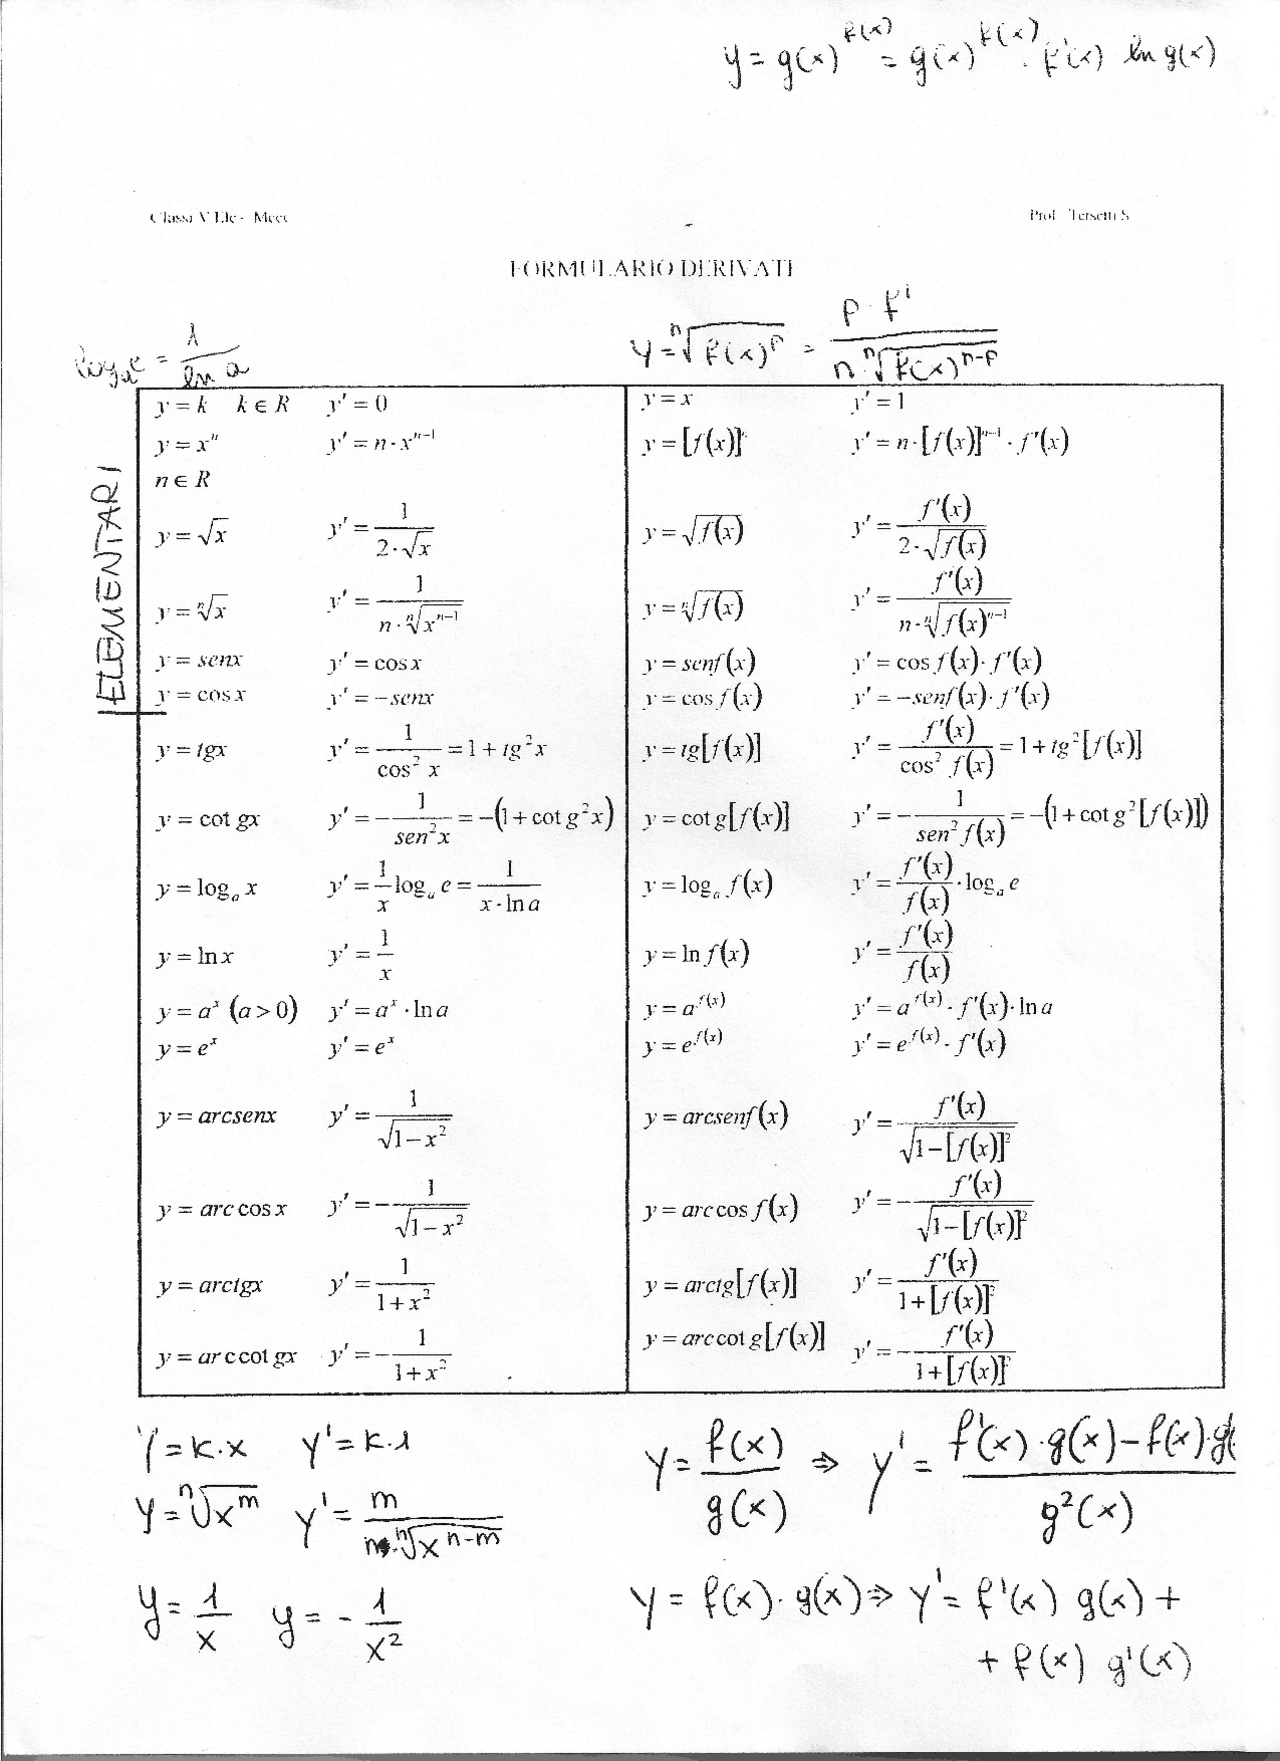 y = g(x)^f(x) = g(x)^f(x) · f'(x) ln g(x)
Classi V Ele - Mecc Prof. Tersetti S
FORMULARIO DERIVATE
log_a e = 1/ln a y = ⁿ√f(x)^p = p · f' / n · ⁿ√f(x)^(n-p)
ELEMENTARI
y = k k ∈ R y' = 0 y = x y' = 1
y = xⁿ y' = n · x^(n-1) y = [f(x)]ⁿ y' = n · [f(x)]^(n-1) · f'(x)
n ∈ R
y = √x y' = 1 / 2·√x y = √f(x) y' = f'(x) / 2·√f(x)
y = ⁿ√x y' = 1 / n · ⁿ√x^(n-1) y = ⁿ√f(x) y' = f'(x) / n · ⁿ√f(x)^(n-1)
y = senx y' = cos x y = senf(x) y' = cos f(x) · f'(x)
y = cos x y' = -senx y = cos f(x) y' = -senf(x) · f'(x)
y = tgx y' = 1 / cos² x = 1 + tg² x y = tg[f(x)] y' = f'(x) / cos² f(x) = 1 + tg²[f(x)]
y = cot gx y' = - 1 / sen²x = -(1 + cot g²x) y = cot g[f(x)] y' = - 1 / sen² f(x) = -(1 + cot g²[f(x)])
y = log_a x y' = 1/x log_a e = 1 / x · ln a y = log_a f(x) y' = f'(x) / f(x) · log_a e
y = ln x y' = 1/x y = ln f(x) y' = f'(x) / f(x)
y = a^x (a > 0) y' = a^x · ln a y = a^f(x) y' = a^f(x) · f'(x) · ln a
y = e^x y' = e^x y = e^f(x) y' = e^f(x) · f'(x)
y = arcsenx y' = 1 / √1 - x² y = arcsenf(x) y' = f'(x) / √1 - [f(x)]²
y = arc cos x y' = - 1 / √1 - x² y = arc cos f(x) y' = - f'(x) / √1 - [f(x)]²
y = arctgx y' = 1 / 1 + x² y = arctg[f(x)] y' = f'(x) / 1 + [f(x)]²
y = arc cot gx y' = - 1 / 1 + x² y = arc cot g[f(x)] y' = - f'(x) / 1 + [f(x)]²
y = k · x y' = k · 1 y = f(x) / g(x) ⇒ y' = f'(x) · g(x) - f(x) · g'( / g²(x)
y = ⁿ√x^m y' = m / n · ⁿ√x^(n-m)
y = 1/x y = - 1/x² y = f(x) · g(x) ⇒ y' = f'(x) g(x) +
+ f(x) g'(x)